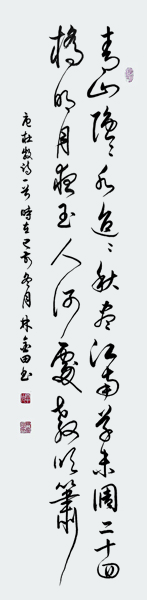 青山隱〻水迢〻秋盡江南草未凋二十四
橋明月夜玉人何處教吹簫
唐杜牧詩一首 時在己亥冬月 林金田書